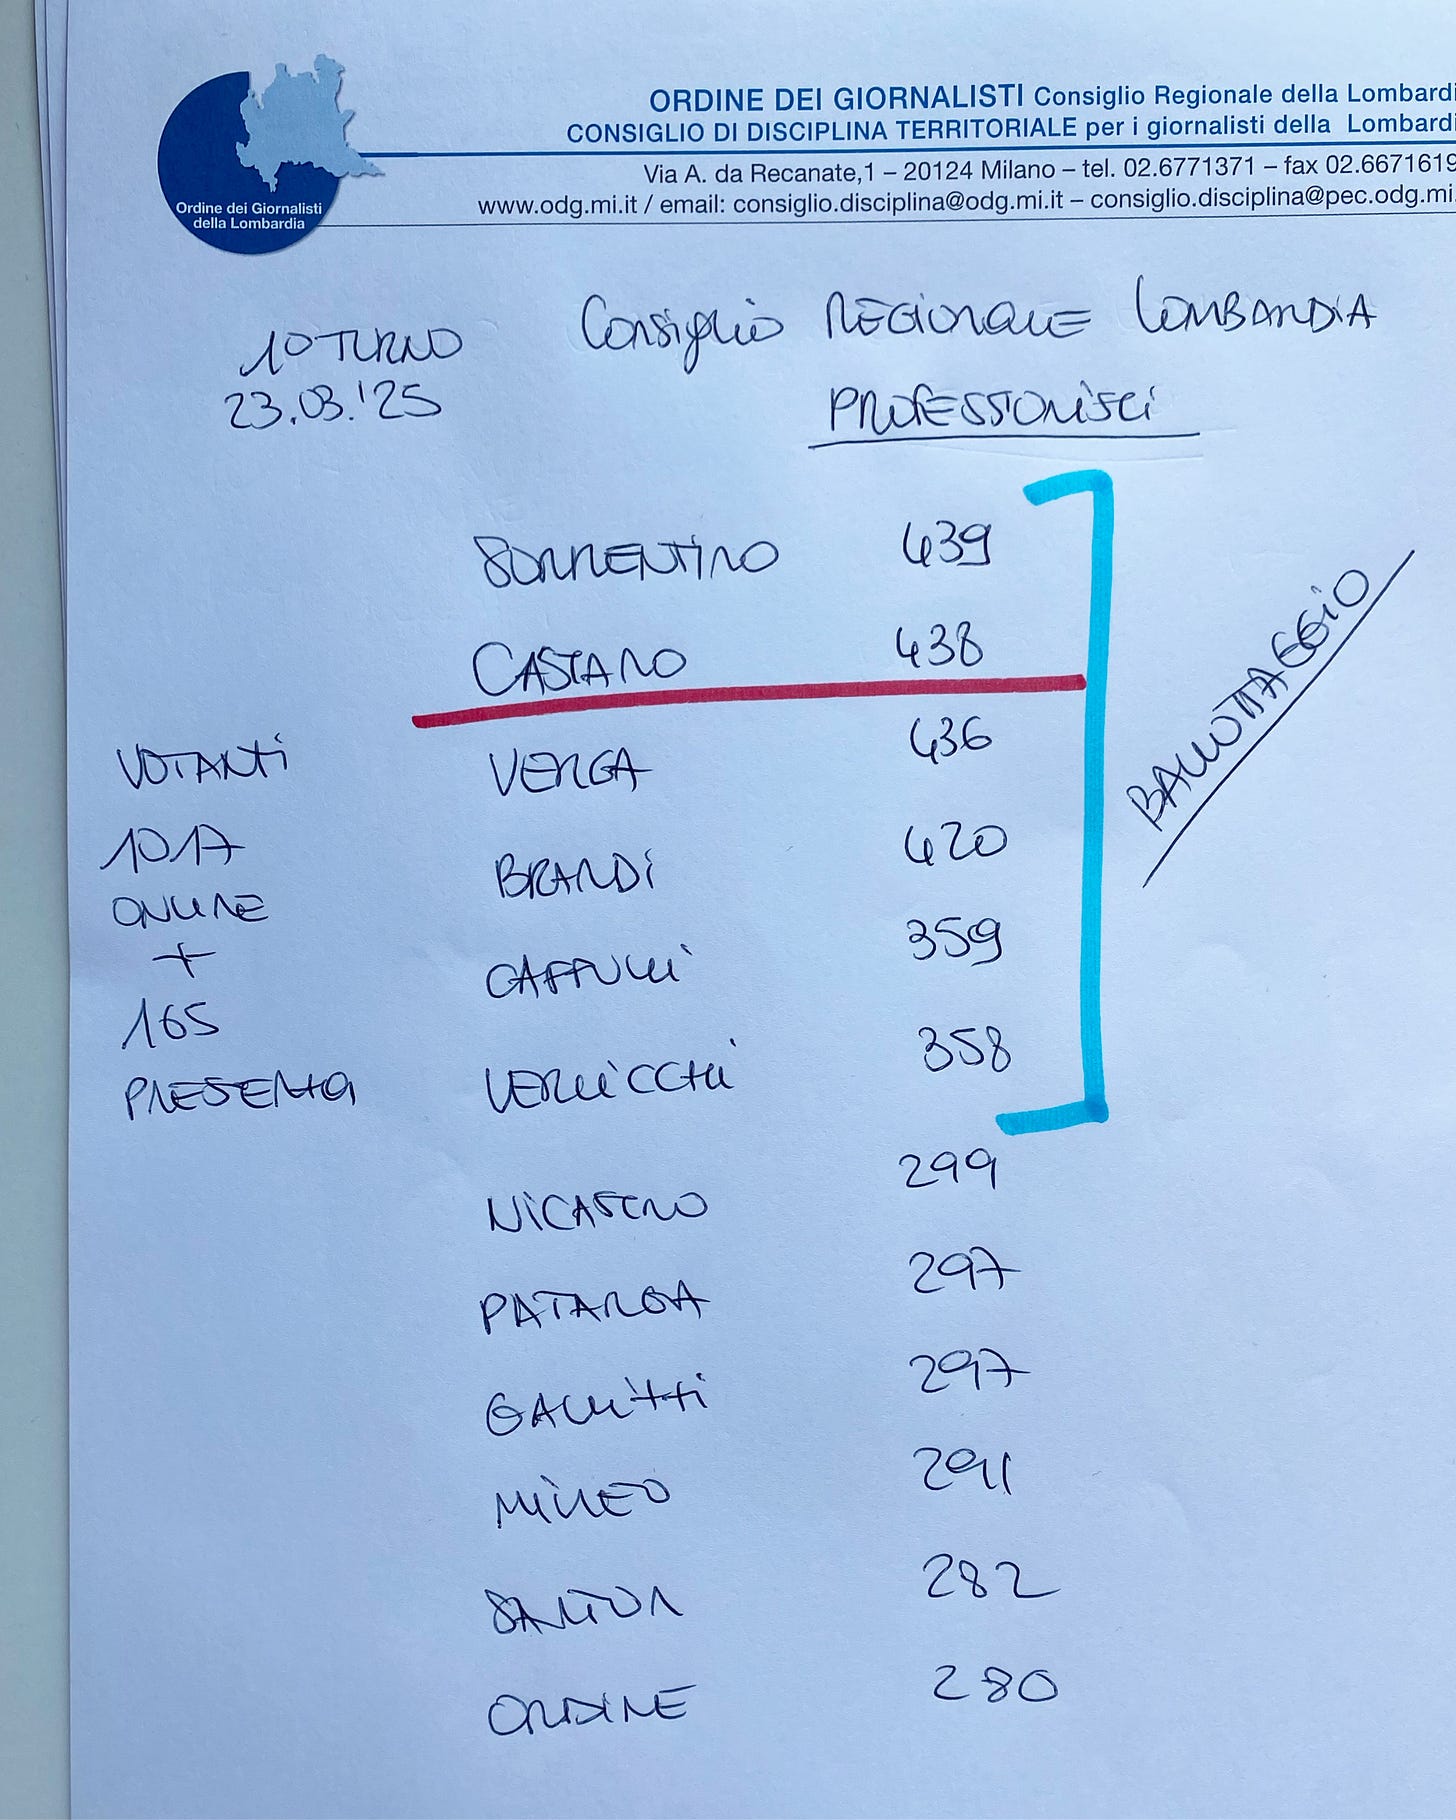 ORDINE DEI GIORNALISTI Consiglio Regionale della Lombardi
CONSIGLIO DI DISCIPLINA TERRITORIALE per i giornalisti della Lombardi
Via A. da Recanate,1 – 20124 Milano – tel. 02.6771371 – fax 02.6671619
www.odg.mi.it / email: consiglio.disciplina@odg.mi.it – consiglio.disciplina@pec.odg.mi.
Ordine dei Giornalisti
della Lombardia
1º TURNO
23.03.'25
Consiglio REGIONALE LOMBARDIA
PROFESSIONISTI
SORRENTINO 439
CASTANO 438
VERGA 436
BRANDI 420
CAFFULLI 359
VERLICCHI 358
NICASTRO 299
PATARGA 297
GALLITTI 297
MILEO 291
SANTON 282
ORDINE 280
VOTANTI
1017
ONLINE
+
165
PRESENZA
BALLOTTAGGIO